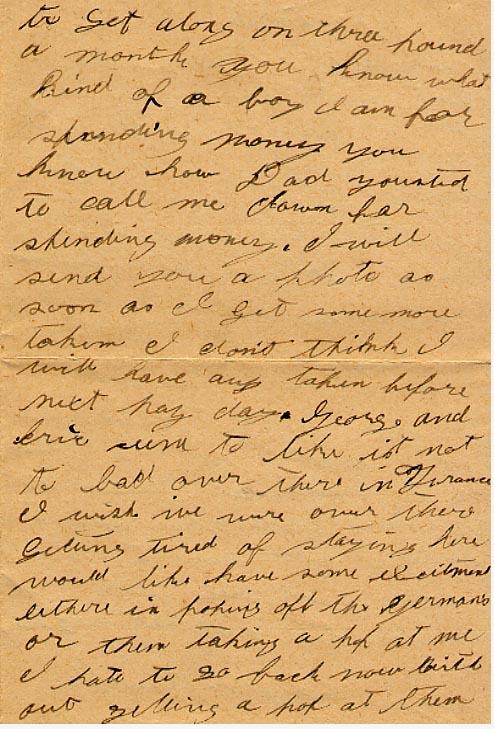 to get along on three pound
a month you know what
kind of a boy I am for
spending money you
know how Dad yousted
to call me down for
spending money. I will
send you a photo as
soon as I get some more
taken I dont think I
will have any taken before
next pay day. George and
Eric seem to like ist not
to bad over there in France
I wish we were over there
getting tired of staying here
would like have some excitment
eithere in poping off the germans
or them taking a pop at me
I hate to go back now with
out getting a pop at them